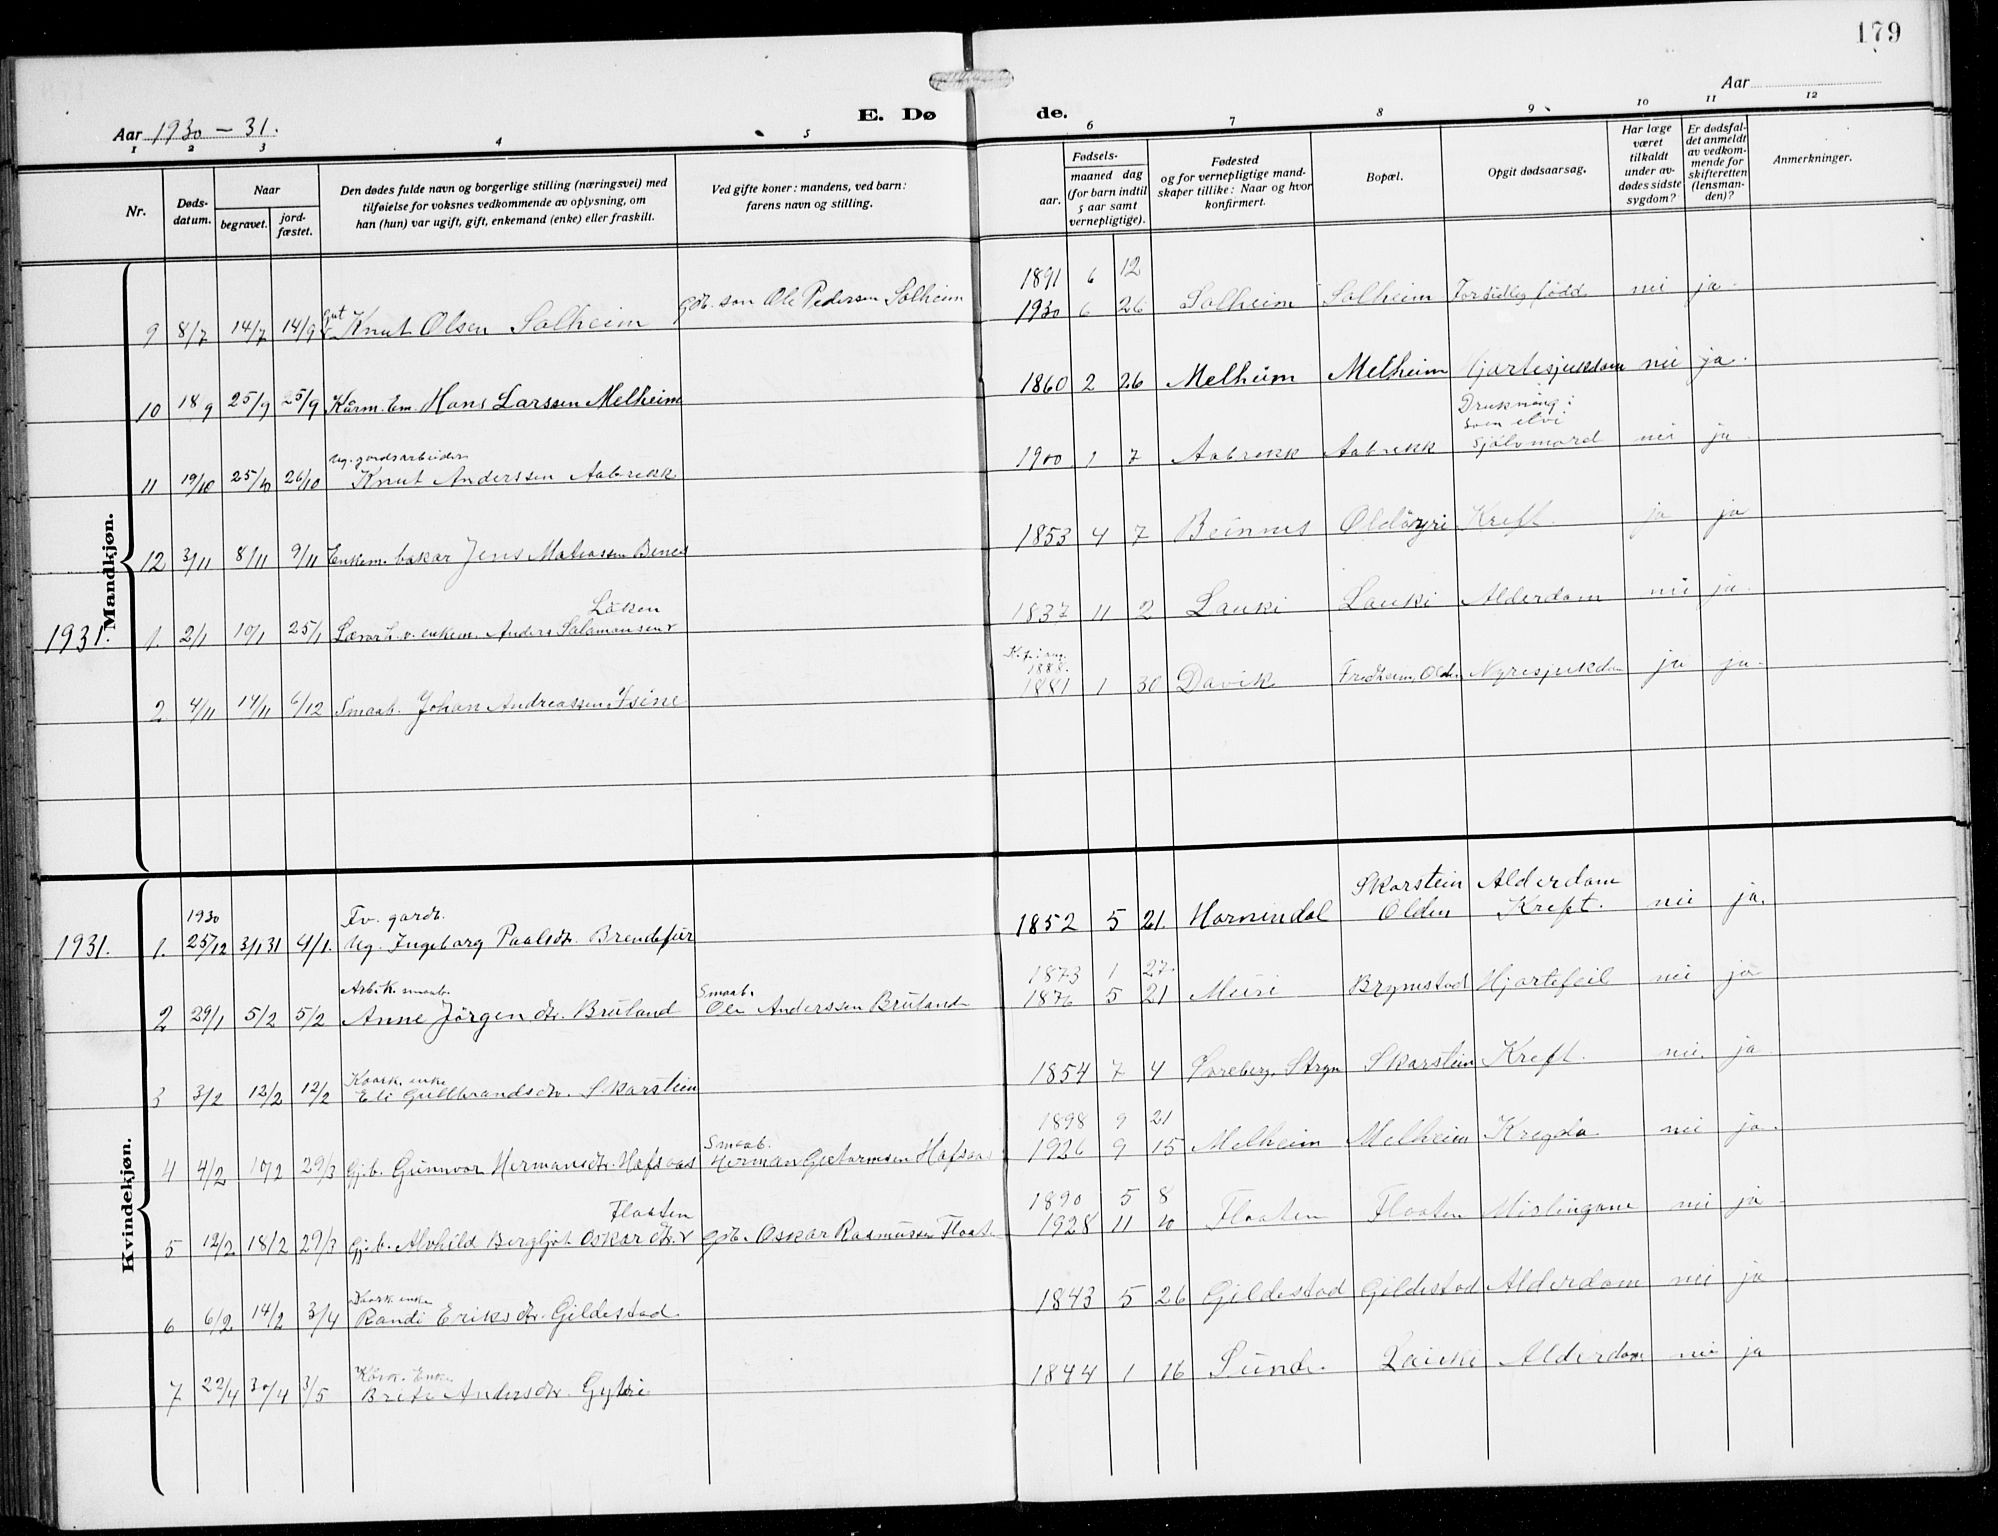 179
Aar 1930 - 31.
E. Døde.
Aar
1 2 3 4 5 6 7 8 9 10 11 12
Nr.
Døds-
datum.
Naar
begravet.
jord-
fæstet.
Den dødes fulde navn og borgerlige stilling (næringsvei) med
tilføielse for voksnes vedkommende av oplysning, om
han (hun) var ugift, gift, enkemand (enke) eller fraskilt.
Ved gifte koner: mandens, ved barn:
farens navn og stilling.
Fødsels-
aar. maaned dag
(for barn indtil
5 aar samt
vernepligtige).
Fødested
og for vernepligtige mand-
skaper tillike: Naar og hvor
konfirmert.
Bopæl.
Opgit dødsaarsag.
Har læge
været
tilkaldt
under av-
dødes sidste
sygdom?
Er dødsfal-
det anmeldt
av vedkom-
mende for
skifteretten
(lensman-
den)?
Anmerkninger.
Mandkjøn.
1891 6 12
9 8/7 14/7 14/9 gut Knut Olsen Solheim Gdb. son Ole Pedersen Solheim 1930 6 26 Solheim Solheim Fortidleg född nei ja.
10 18/9 25/9 25/9 Kårm. Em. Hans Larssen Melheim 1860 2 26 Melheim Melheim Hjartesjukdom nei ja.
Drukning i
11 19/10 25/10 26/10 Ug. gardsarbeider Knut Anderssen Aabrekk 1900 1 7 Aabrekk Aabrekk Sjölvmord nei ja.
12 3/11 8/11 9/11 Enkem. bakar Jens Mateassen Benes 1853 4 7 Beinnes Oldöyri Kreft. ja ja
Löken
1931. 1. 2/1 10/1 25/1 enkem. Anders Salamonsen 1837 11 2 Lauki Lauki Alderdom nei ja.
1888.
2 4/11 14/11 6/12 Smaab. Johan Andreassen Isene 1881 1 30 Davik Fredheim, Olden Nyresjukdom ja ja.
Kvindekjøn.
1930 Fv. gardb. Skarstein Alderdom
1931. 1. 25/12 3/1 31 4/1. Ug. Ingeborg Paalsdr. Brendefur 1852 5 21. Hornindal Olden Kreft. nei ja.
Smaab. 1873 1 27.
2 29/1 5/2 5/2 Anne Jörgensdr. Bruland Ole Anderssen Bruland 1876 5 21 Muri Brynestad Hjartefeil nei ja
3 3/2 12/2 12/2 Kaark. enke Eli Gullbrandsdr. Skarstein 1854 7 4 Storeberg, Stryn Skarstein Kreft. nei. ja
Smaab. 1898 9 21
4 4/2 10/2 29/3 Gjb. Gunnvor Hermansdr. Hafsaas Herman Guttormsen Hafsaas 1926 9 15 Melheim Melheim nei ja.
Flaaten 1890 5 8
5 12/2 18/2 29/3 Gjb. Alvhild Bergljot Oskarsdr. Gdb. Oskar Rasmussen Flaat. 1928 11 10 Flaaten Flaaten Mislingane nei ja
6 6/2 14/2 3/4 Kaark enke Randi Eriksdr. Gildestad. 1843 5 26 Gildestad Gildestad Alderdom nei ja
7 22/4 30/4 3/5 Kark. Enke Brite Andersdr. Gytri 1844 1 16 Sunde. Lauki Alderdom nei ja